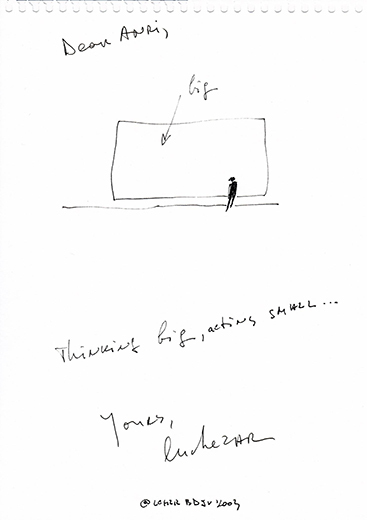 Dear ANRI,
big
Thinking big, acting SMALL...
Yours,
luchezAR
© LCHZR BDJV '2003